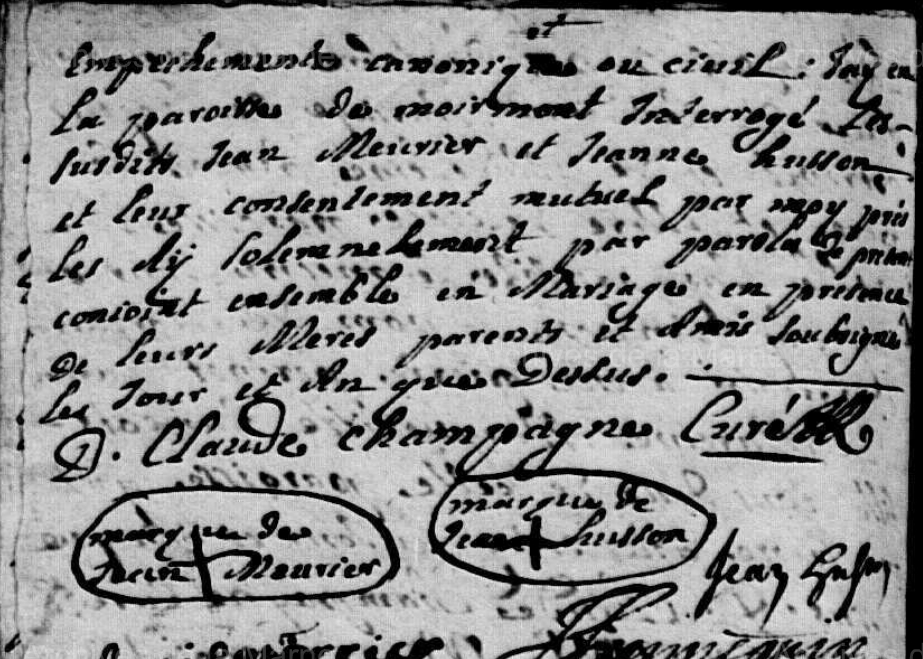 et
Empechements canonique ou civil : Jay en
La paroisse de moirmont Interrogé Les
susdits Jean Meurier et Jeanne husson
et leur consentement mutuel par moy pris
Les ay solemnelement par parole de présent
conioint ensemble en Mariage en presence
de leurs Meres parents et Amis soubsignés
les Jour et An que Dessus.
D. Claude Champagne Curé
marque de
Jean Meurier
marque de
Jeanne husson
Jean